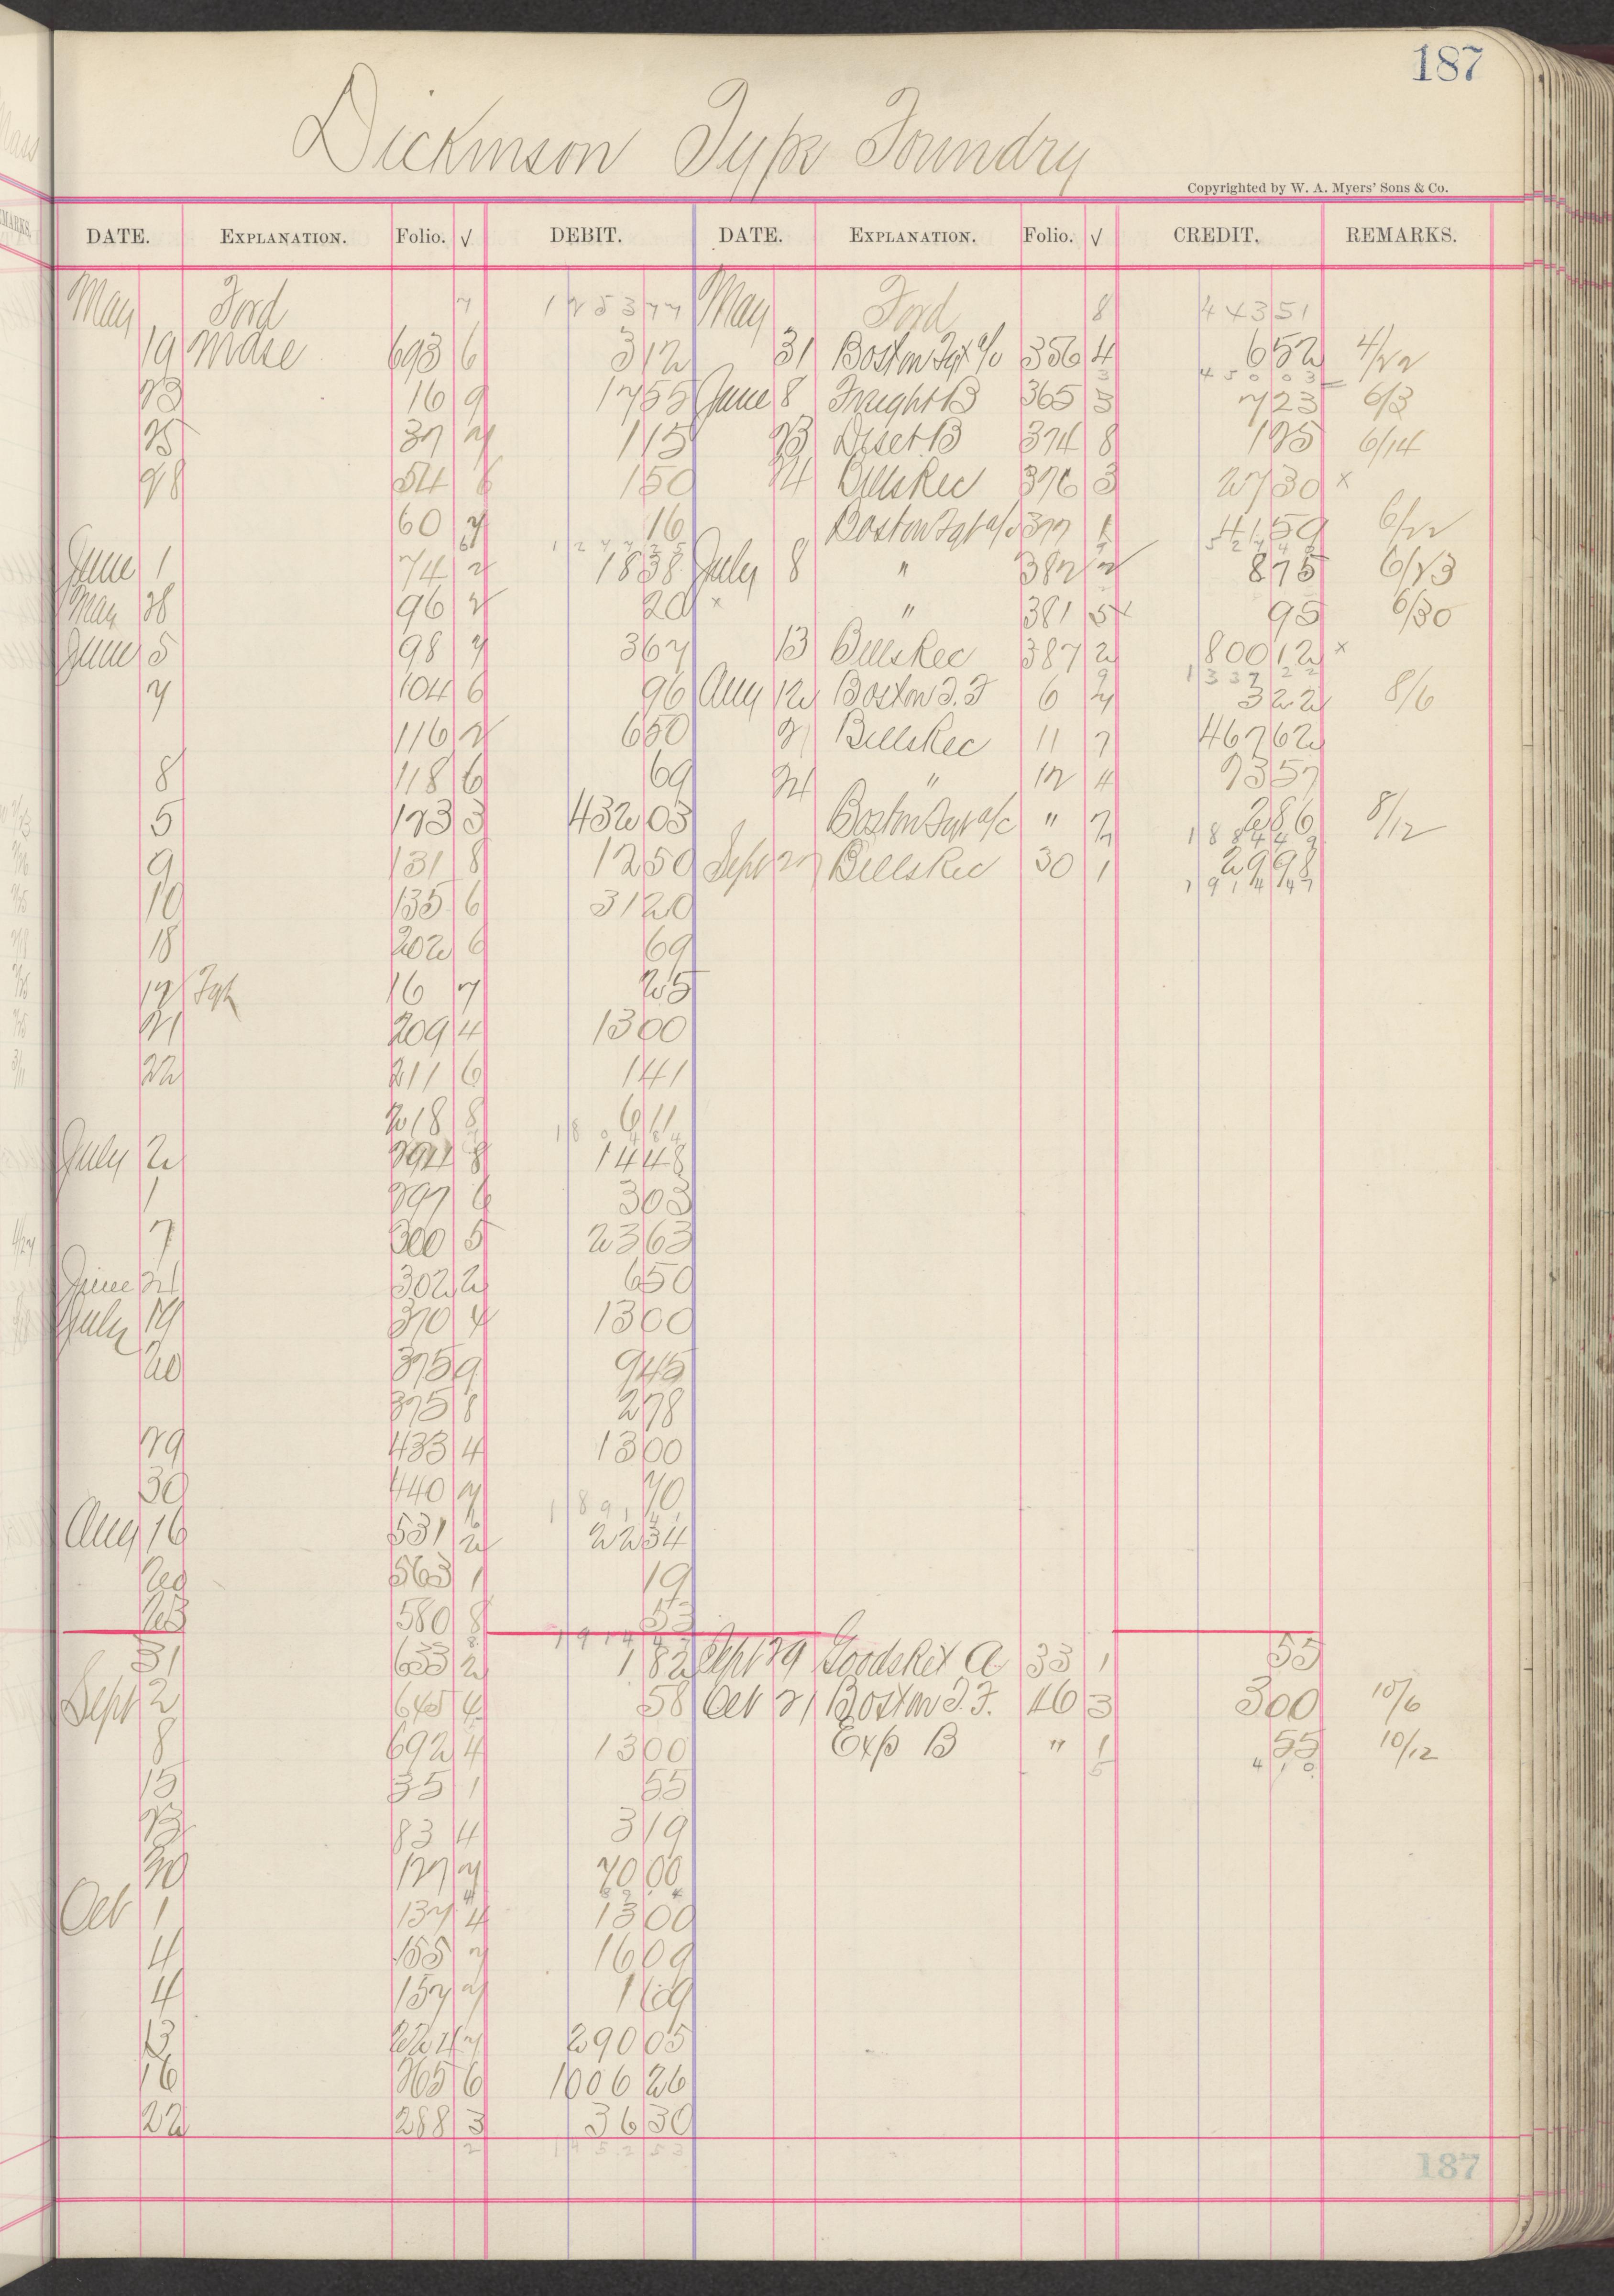 187
Dickinson Type Foundry
Copyrighted by W. A. Myers' Sons & Co.
DATE. EXPLANATION. Folio. √ DEBIT. DATE. EXPLANATION. Folio. √ CREDIT. REMARKS.
May Ford 125377 May Ford 8 44351
19 Mdse 693 6 312 31 Boston Fgt a/c 356 4 652 4/22
16 9 1755 June 8 Freight B 365 3 723 6/3
37 115 23 Disct B 374 8 125 6/14
28 54 150 24 Bills Rec 376 3 2730 x
60 7 16 Boston Fgt a/c 377 1 4159 6/22
June 1 74 2 1838 July 8 " 382 2 875 6/23
May 28 96 2 20 x " 381 5 x 95 6/30
June 5 98 7 367 13 Bills Rec 387 2 80012 x
7 104 6 96 Aug 12 Boston T. F 6 322 8/6
116 2 650 21 Bills Rec 11 7 46762
8 118 6 69 24 " 12 4 7357
5 123 3 43203 Boston Fgt a/c " 286 8/12
9 131 8 1250 Sept 27 Bills Rec 30 1 2998
10 135 6 3120
18 202 6 69
17 Fgt 16 7 25
21 209 4 1300
22 211 6 141
218 8 611
July 2 294 8 1448
1 297 6 303
7 300 5 2363
June 24 302 2 650
July 19 370 4 1300
20 375 9 945
375 8 278
29 433 4 1300
30 440 7 70
Aug 16 531 2 2234
20 563 1 19
25 580 8 53
31 633 2 182 Sept 29 Goods Ret A 33 1 55
Sept 2 645 4 58 Oct 21 Boston T. F. 46 3 300 10/6
8 692 4 1300 Exp B " 1 55 10/12
15 35 1 55
23 83 4 319
30 127 7 7000
Oct 1 137 4 1300
4 155 7 1609
4 157 7 169
13 224 7 29005
16 265 6 100626
22 288 3 3630
187